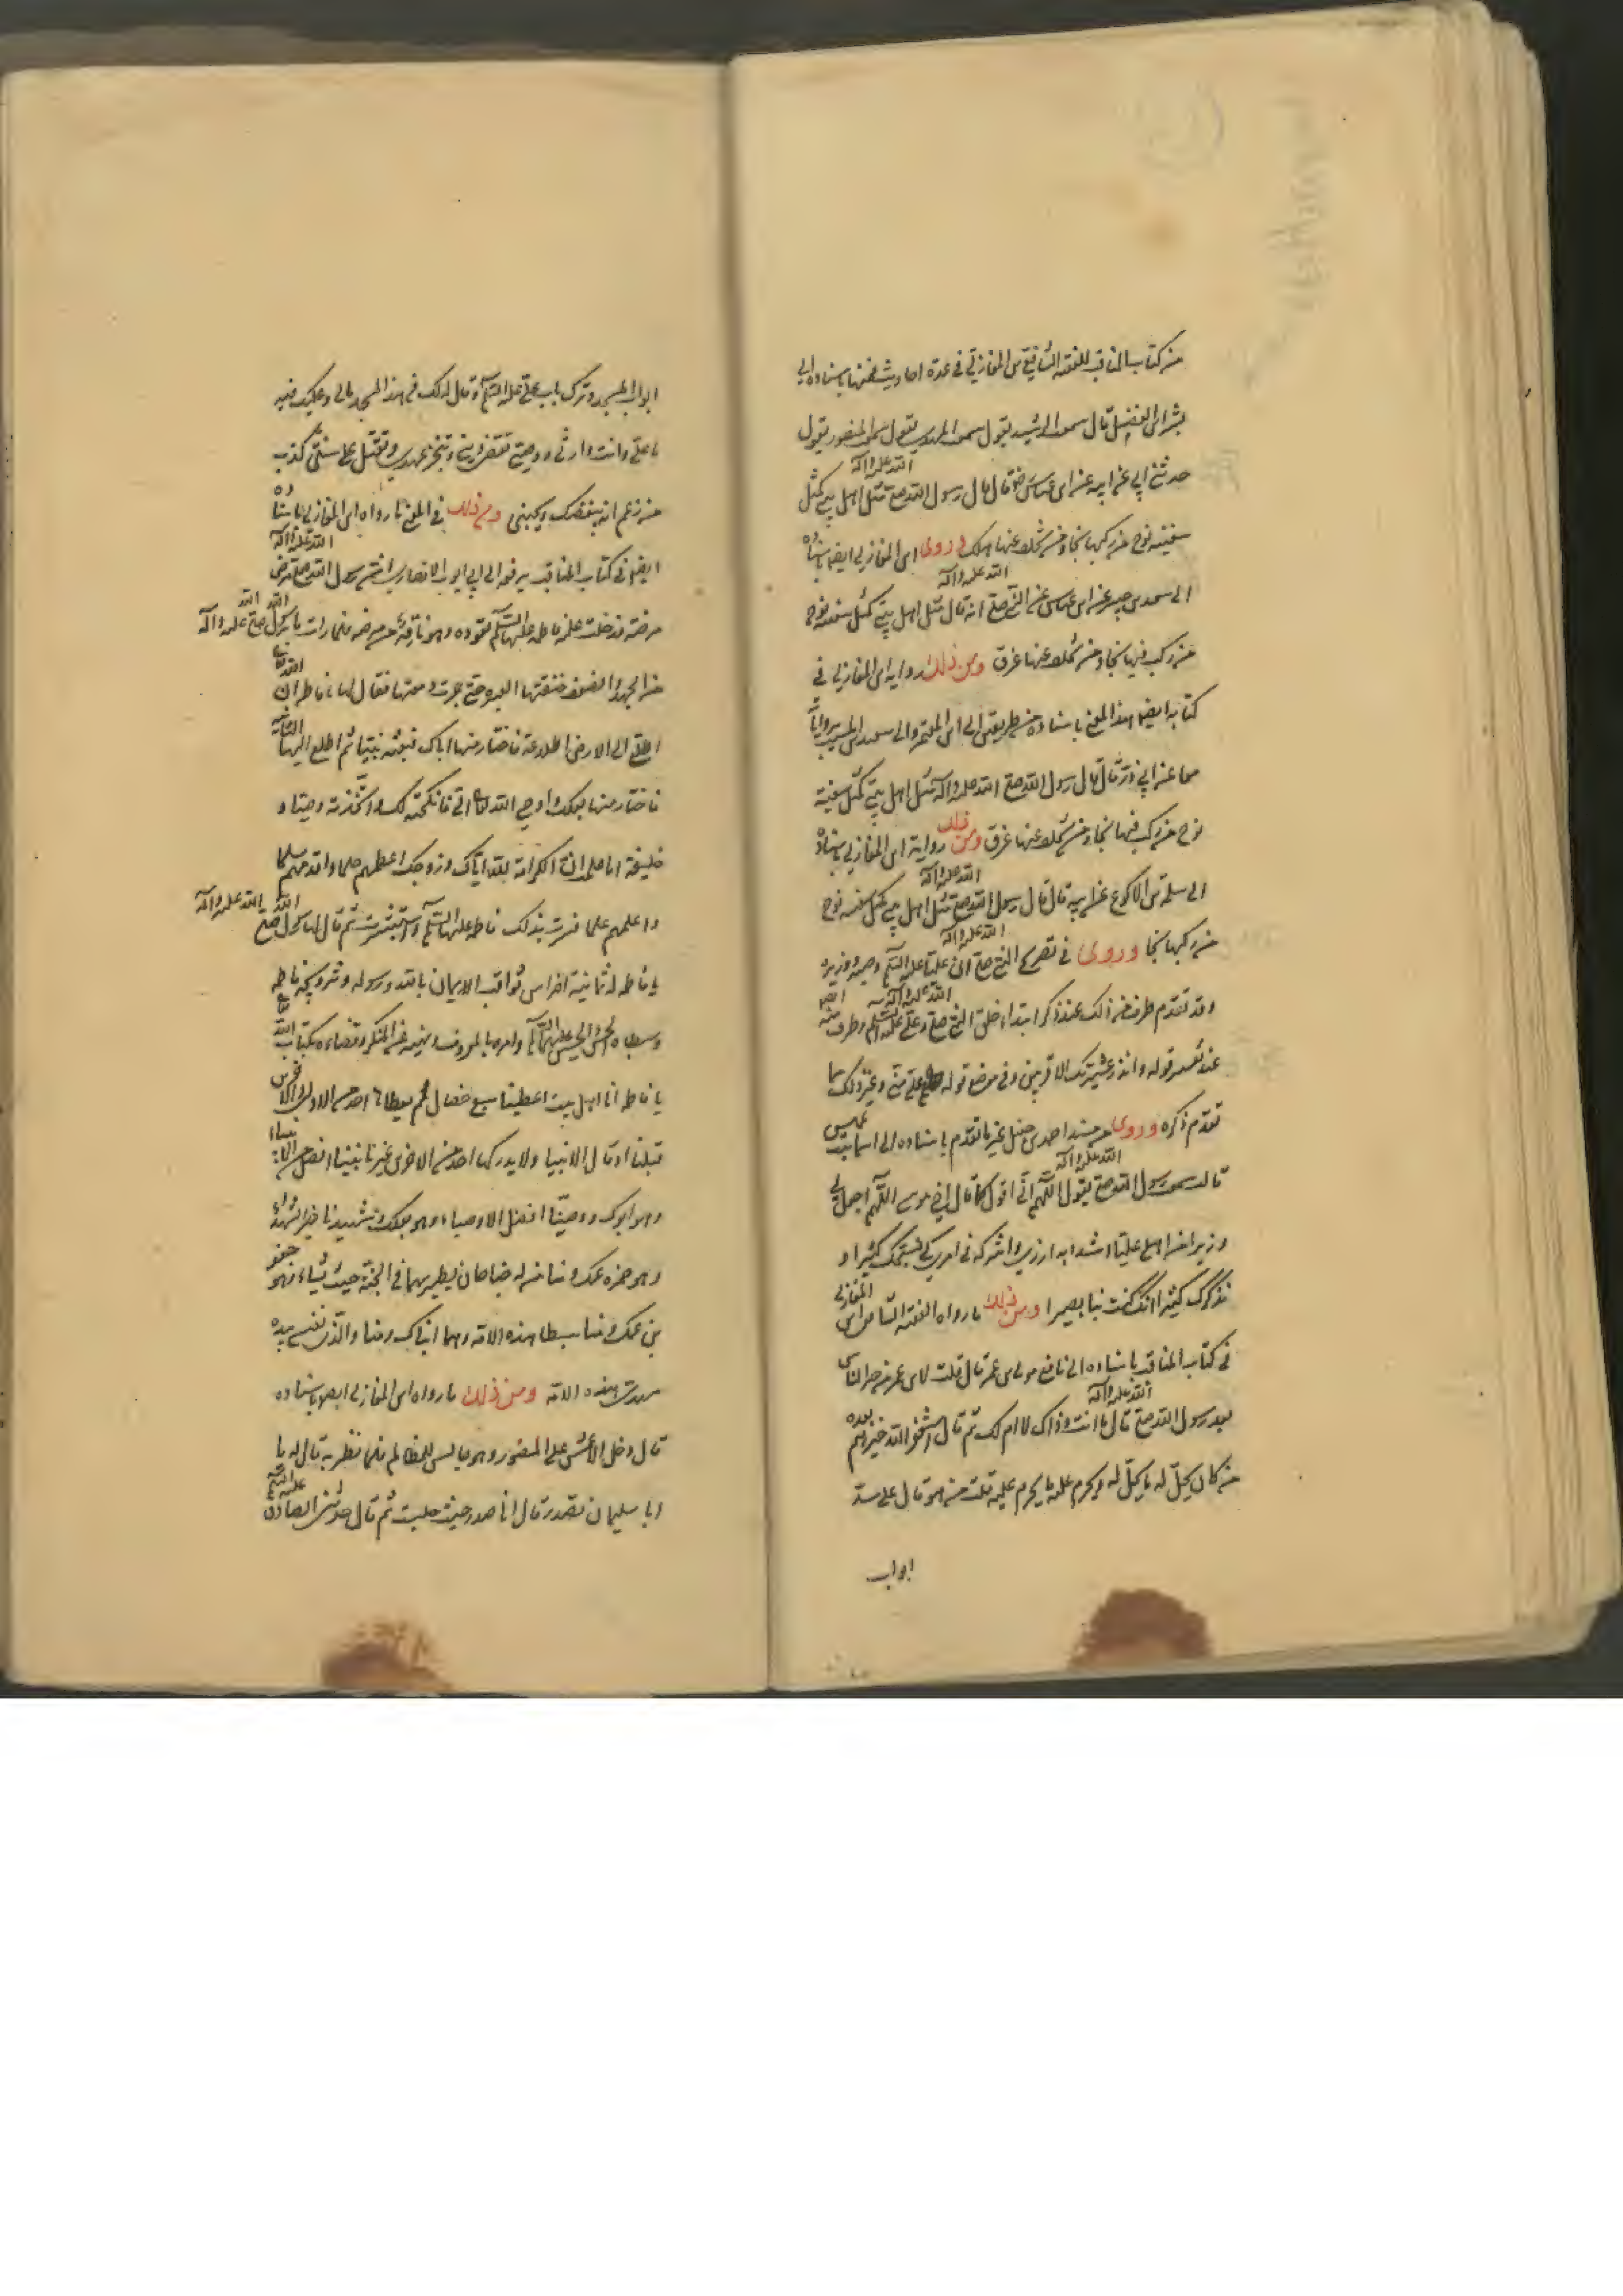 من كتاب المناقب للفقيه الشافعي بن المغازلي في عدة احاديث فمنها باسناده الى
بشر ابن الفضل قال سمعت الرشيد يقول سمعت المهدي يقول سمعت المنصور يقول
حدثني ابي عن ابيه عن ابن عباس رض قال قال رسول الله صلى الله عليه وآله مثل اهل بيتي كمثل
سفينة نوح من ركبها نجا ومن تخلف عنها هلك وروى ابن المغازلي ايضا باسناده
الى سعيد بن جبير عن ابن عباس عن النبي صلى الله عليه وآله انه قال مثل اهل بيتي كمثل سفينة نوح
من ركب فيها نجا ومن تخلف عنها غرق ومن ذلك رواية ابن المغازلي في
كتابه ايضا هذا المعنى باسناده من طريقين الى ابن المعتمر والى سعيد بن المسيب برواياتهما
معا عن ابي ذر قال قال رسول الله صلى الله عليه وآله مثل اهل بيتي كمثل سفينة
نوح من ركب فيها نجا ومن تخلف عنها غرق ومن ذلك رواية ابن المغازلي باسناده
الى سلمة بن الاكوع عن ابيه قال قال رسول الله صلى الله عليه وآله مثل اهل بيتي كمثل سفينة نوح
من ركبها نجا وروى في تصريح النبي صلى الله عليه وآله ان عليا عليه السلم وصيه ووزيره
وقد تقدم طرف من ذلك عند ذكر ابتداء خلق النبي صلى الله عليه وآله وعلي عليه السلم وطرف منه ايضا
عند تفسير قوله وانذر عشيرتك الاقربين وفي موضع قوله علي مني وغير ذلك مما
تقدم ذكره وروى من مسند احمد بن حنبل غير ما تقدم باسناده الى اسماء بنت عميس
قالت سمعت رسول الله صلى الله عليه وآله يقول اللهم اني اقول كما قال اخي موسى اللهم اجعل لي
وزيرا من اهلي عليا اشدد به ازري واشركه في امري كي نسبحك كثيرا و
نذكرك كثيرا انك كنت بنا بصيرا ومن ذلك ما رواه الفقيه الشافعي ابن المغازلي
في كتاب المناقب باسناده الى نافع مولى ابن عمر قال قلت لابن عمر من خير الناس
بعد رسول الله صلى الله عليه وآله قال ما انت وذاك لا ام لك ثم قال استغفر الله خيرهم بعده
من كان يحل له ما يحل له ويحرم عليه ما يحرم عليه قلت من هو قال علي سد
ابواب
ابواب المسجد وترك باب علي عليه السلم وقال له لك في هذا المسجد مالي وعليك فيه
ما علي وانت وارثي ووصيي تقضي ديني وتنجز عهدي وتقتل على سنتي كذب
من زعم انه يبغضك ويحبني ومن ذلك في المعنى ما رواه ابن المغازلي باسناده
ايضا في كتاب المناقب يرفعه الى ابي ايوب الانصاري ان رسول الله صلى الله عليه وآله مرض
مرضة فدخلت عليه فاطمة عليها السلم تعوده وهو ناقه من مرضه فلما رات ما برسول الله صلى الله عليه وآله
من الجهد والضعف خنقتها العبرة حتى جرت دمعتها فقال لها يا فاطمة ان الله تعالى
اطلع الى الارض اطلاعة فاختار منها اباك فبعثه نبيا ثم اطلع اليها الثانية
فاختار منها بعلك فاوحى الله تعالى الي فانكحته لك واتخذته وصيا و
خليفة اما علمت ان لكرامة الله اياك زوجك اعظمهم حلما واقدمهم سلما
واعلمهم علما فسرت بذلك فاطمة عليها السلم واستبشرت ثم قال لها رسول الله صلى الله عليه وآله
يا فاطمة له ثمانية اضراس ثواقب الايمان بالله ورسوله وتزويجه فاطمة
وسبطاه الحسن والحسين عليهما السلم وامره بالمعروف ونهيه عن المنكر وقضاءه بكتاب الله تع
يا فاطمة انا اهل بيت اعطينا سبع خصال لم يعطها احد من الاولين والاخرين
قبلنا او قال الانبيا ولا يدركها احد من الاخرين غيرنا نبينا افضل الانبياء
وهو ابوك ووصينا افضل الاوصياء وهو بعلك وشهيدنا خير الشهداء
وهو حمزه عمك ومنا من له جناحان يطير بهما في الجنة حيث يشاء وهو جعفر
بن عمك ومنا سبطا هذه الامة وهما ابناك ومنا والذي نفسي بيده
مهدي هذه الامة ومن ذلك ما رواه ابن المغازلي ايضا باسناده
قال دخل الاعمش على المنصور وهو جالس للمظالم فلما نظر به قال له يا
ابا سليمان تصدر قال انا صدر حيث جلست ثم قال حدثني الصادق عليه السلم